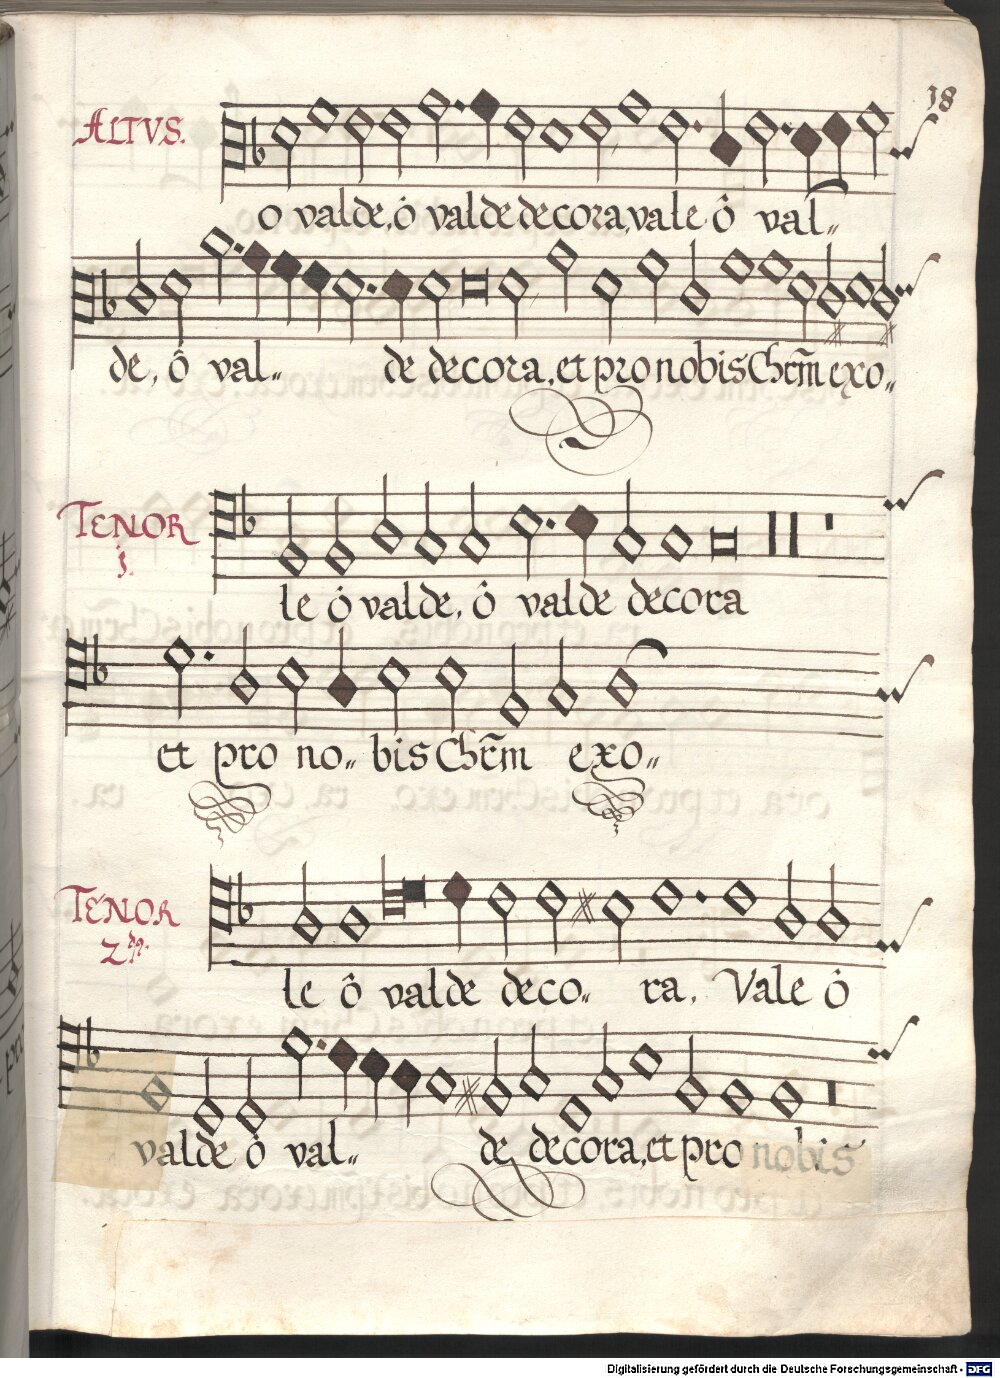 18
ALTVS.
o valde, ô valde decora, vale ô val„
de, ô val„ de decora, et pro nobis Chr̃m exo„
TENOR
j.
le ô valde, ô valde decora
et pro no„ bis Chr̃m exo„
TENOR
2
le ô valde deco„ ra, Vale ô
valde ô val„ de decora, et pro nobis
Digitalisierung gefördert durch die Deutsche Forschungsgemeinschaft - DFG